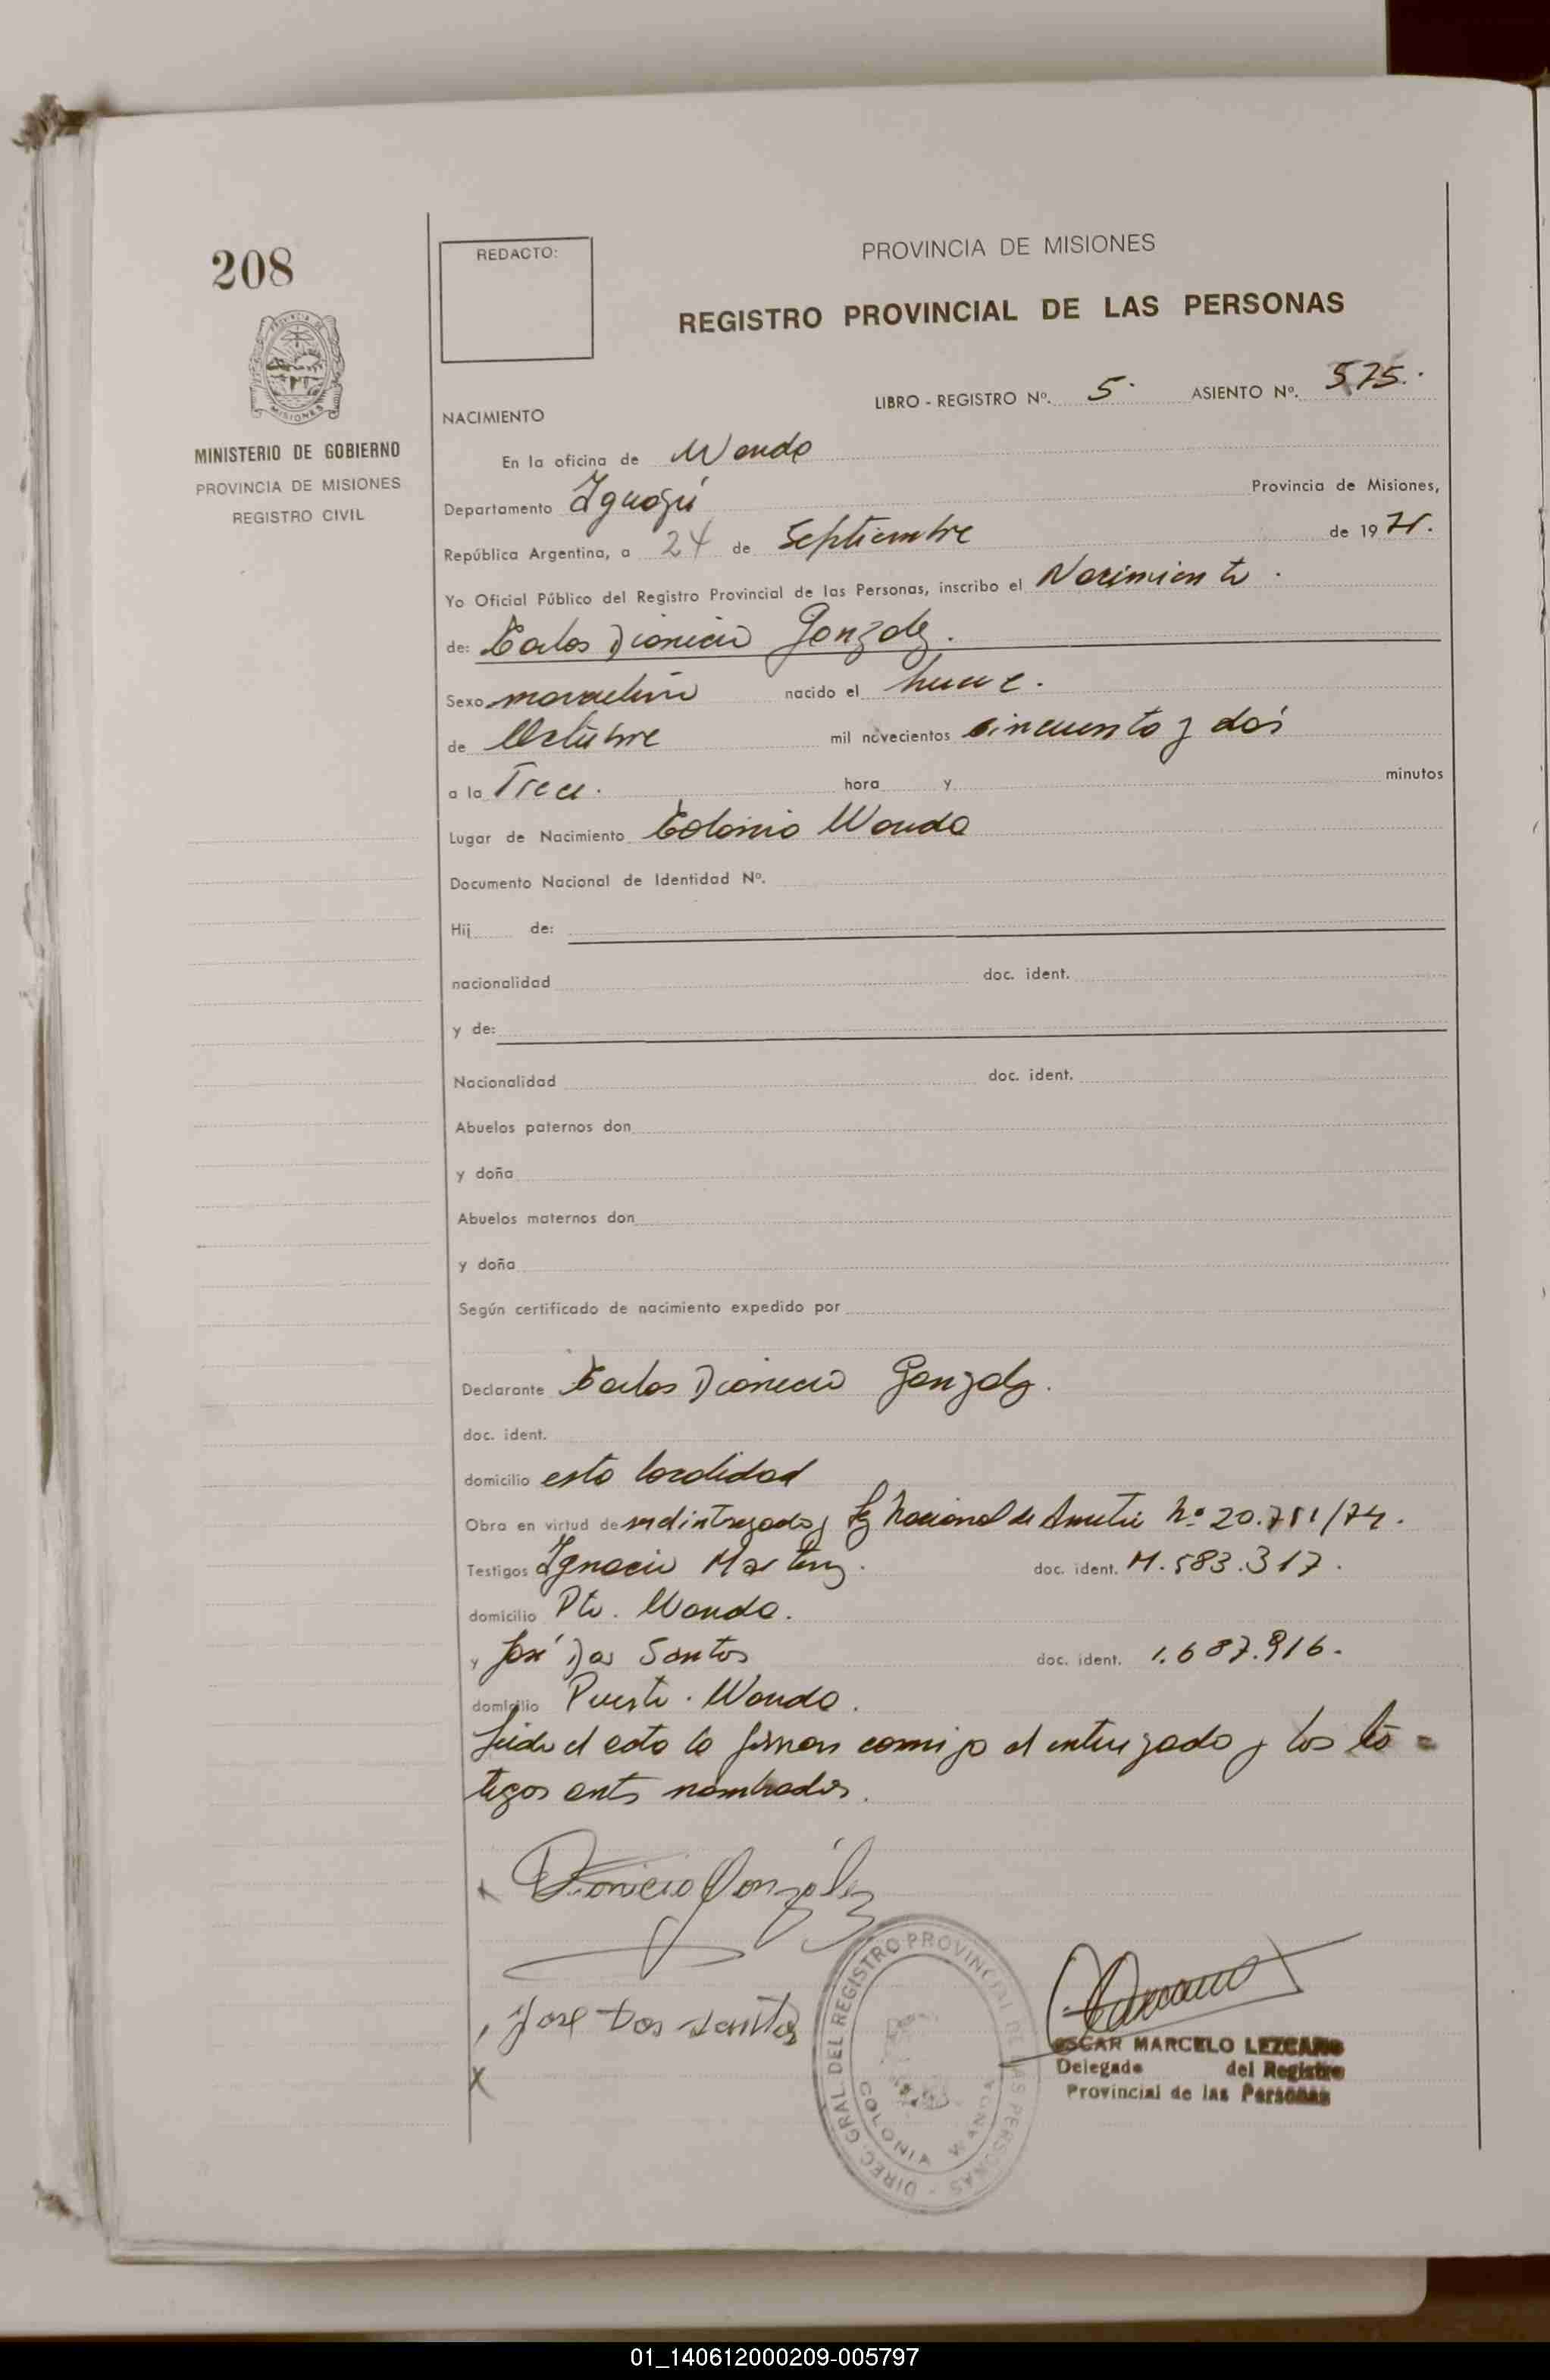 208
REDACTO:
PROVINCIA DE MISIONES
REGISTRO PROVINCIAL DE LAS PERSONAS
MINISTERIO DE GOBIERNO
PROVINCIA DE MISIONES
REGISTRO CIVIL
LIBRO - REGISTRO Nº. 5 ASIENTO Nº. 575.
NACIMIENTO
En la oficina de Wanda
Departamento Iguazú Provincia de Misiones,
República Argentina, a 24 de Septiembre de 19
Yo Oficial Público del Registro Provincial de las Personas, inscribo el Nacimiento.
de: Carlos Dionicio Gonzalez.
Sexo masculino nacido el nueve.
de Octubre mil novecientos cincuenta y dos
a la Trece. hora y minutos
Lugar de Nacimiento Colonia Wanda
Documento Nacional de Identidad Nº.
Hij de:
nacionalidad doc. ident.
y de:
Nacionalidad doc. ident.
Abuelos paternos don
y doña
Abuelos maternos don
y doña
Según certificado de nacimiento expedido por
Declarante Carlos Dionicio Gonzalez.
doc. ident.
domicilio esta localidad
Obra en virtud de Ley Nacional de Amnistia Nº 20.751/74.
Testigos Ignacio Martinez. doc. ident. M. 583.317.
domicilio Pto. Wanda.
y José Dos Santos doc. ident. 1.687.916.
domicilio Puerto. Wanda.
Leida el acta la firman conmigo el y los tes=
tigos antes nombrados.
x Dionicio González
Jose Dos Santos
X
DIREC. GRAL. DEL REGISTRO PROVINCIAL DE LAS PERSONAS -
COLONIA WANDA
OSCAR MARCELO LEZCANO
Delegado del Registro
Provincial de las Personas
01_140612000209-005797